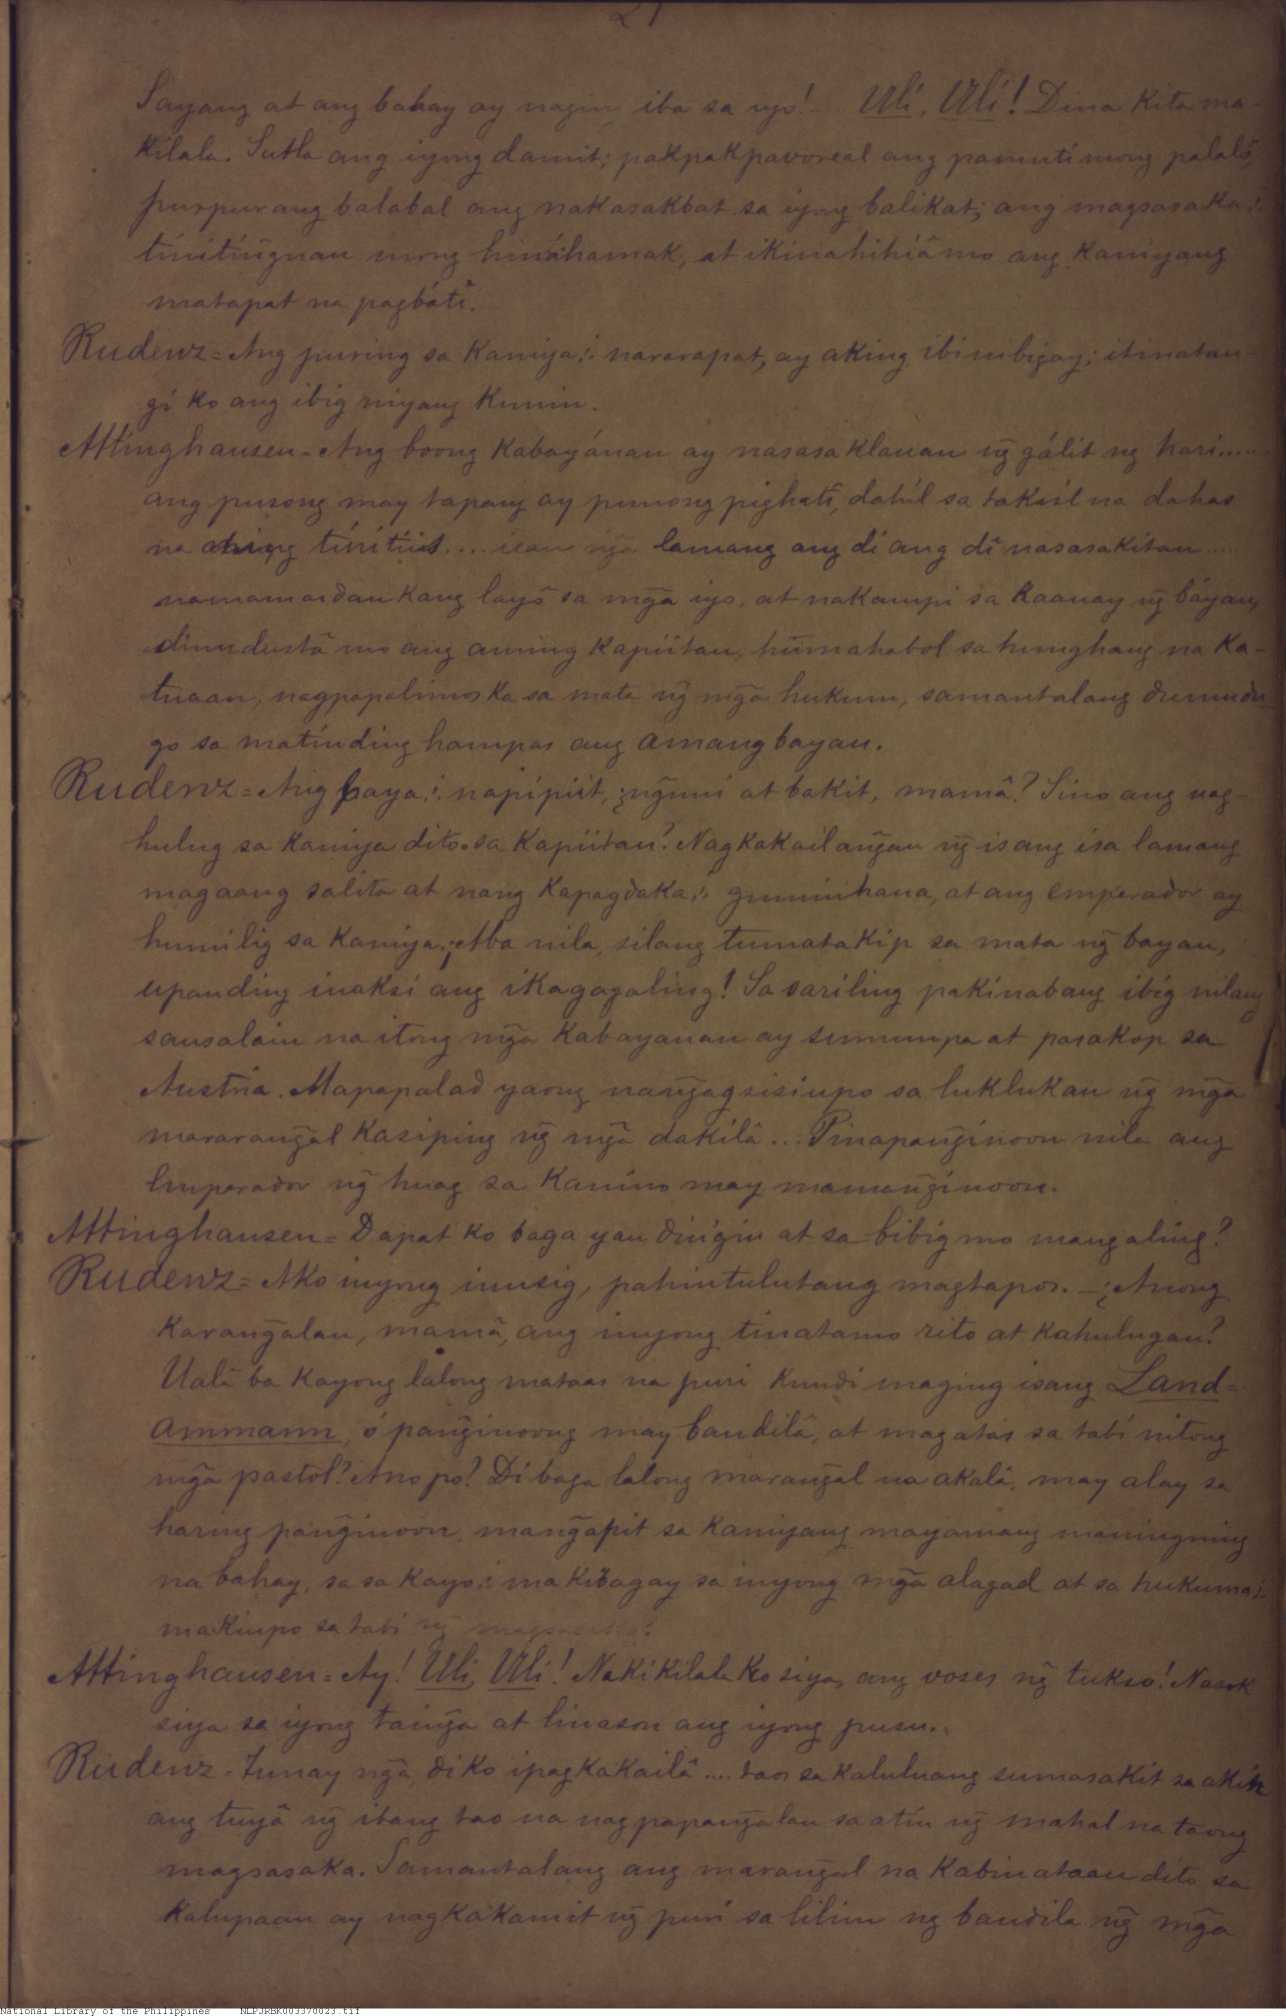 21
Sayang at ang bahay ay nagin iba sa iyo! Uli, Uli! Dina kita ma-
kilala. Sutla ang iyong damit; pakpakpavoreal ang pamuti mong palalò,
purpurang balabal ang nakasakbat sa iyong balikat; ang magsasaka,i
tinitiñgnan mong hináhamak, at ikinahihiâ mo ang kaniyang
matapat na pagbátì.
Rudenz = Ang puring sa kaniya,i nararapat, ay aking ibinibigay; itinatan-
gi ko ang ibig niyang kunin.
Attinghausen = Ang boong kabayánan ay nasasaklauan ng̃ gálit ng hari.....
ang pusong may tapang ay punong pighatî, dahil sa taksil na dahas
na ating tinitiis.... icau ng̃a lamang ang di ang dî nasasakitan.....
namamasdan kang layô sa mg̃a iyo, at nakampi sa kaauay ng̃ báyan,
dinudustâ mo ang aming kapiitan, humahabol sa hunghang na ka-
tuaan, nagpapalimos ka sa mata ng̃ mg̃a hukum, samantalang dumudu-
go sa matinding hampas ang amang bayan.
Rudenz = Ang baya,i napipiit, ¿ng̃uni at bakit, mamâ? Sino ang nag-
hulug sa kaniya dito sa kapiitan? Nagkakailang̃an ng̃ isang isa lamang
magaang salita at nang kapagdaka,i guminhaua, at ang emperador ay
humilig sa kaniya; ¡Aba nila, silang tumatakip sa mata ng̃ bayan,
upanding inaksi ang ikagagaling! Sa sariling pakinabang ibig nilang
sansalain na itong mg̃a kabayanan ay sumumpa at pasakop sa
Austria. Mapapalad yaong nang̃agsisiupo sa luklukan ng̃ mg̃a
mararang̃al kasiping ng̃ mg̃a dakilâ... Pinapang̃inoon nila ang
Emperador ng̃ huag sa kanino may mamang̃inoon.
Attinghausen = Dapat ko baga yan dingin at sa bibig mo mangaling?
Rudenz = Ako inyong inusig, pahintulutang magtapos. — ¿Anong
karang̃alan, mamâ, ang inyong tinatamo rito at kahulugan?
Ualâ ba kayong lalong mataas na puri kundi maging isang Land-
ammann, ó pang̃inoong may bandilâ, at magatas sa tabi nitong
mg̃a pastol? Ano po? Di baga lalong marang̃al na akalà, may alay sa
haring pang̃inoon, mang̃apit sa kaniyang mayamang maningning
na bahay, sa sa kayo,i makibagay sa inyong mg̃a alagad at sa hukuma,i
makiupo sa tabi ng̃ magsasaka?
Attinghausen = Ay! Uli, Uli! Nakikilala ko siya, ang voses ng̃ tukso! Nasok
siya sa iyong taing̃a at linason ang iyong puso.
Rudenz = Tunay ng̃a, diko ipagkakailâ.... taos sa kaluluang sumasakit sa akin
ang tuyâ ng̃ ibang tao na nagpapang̃alan sa atin ng̃ mahal na taong
magsasaka. Samantalang ang marang̃al na kabinataan dito sa
kalupaan ay nagkakamit ng̃ puri sa lilim ng bandila ng̃ mg̃a
National Library of the Philippines NLPJRBK003370023.tif